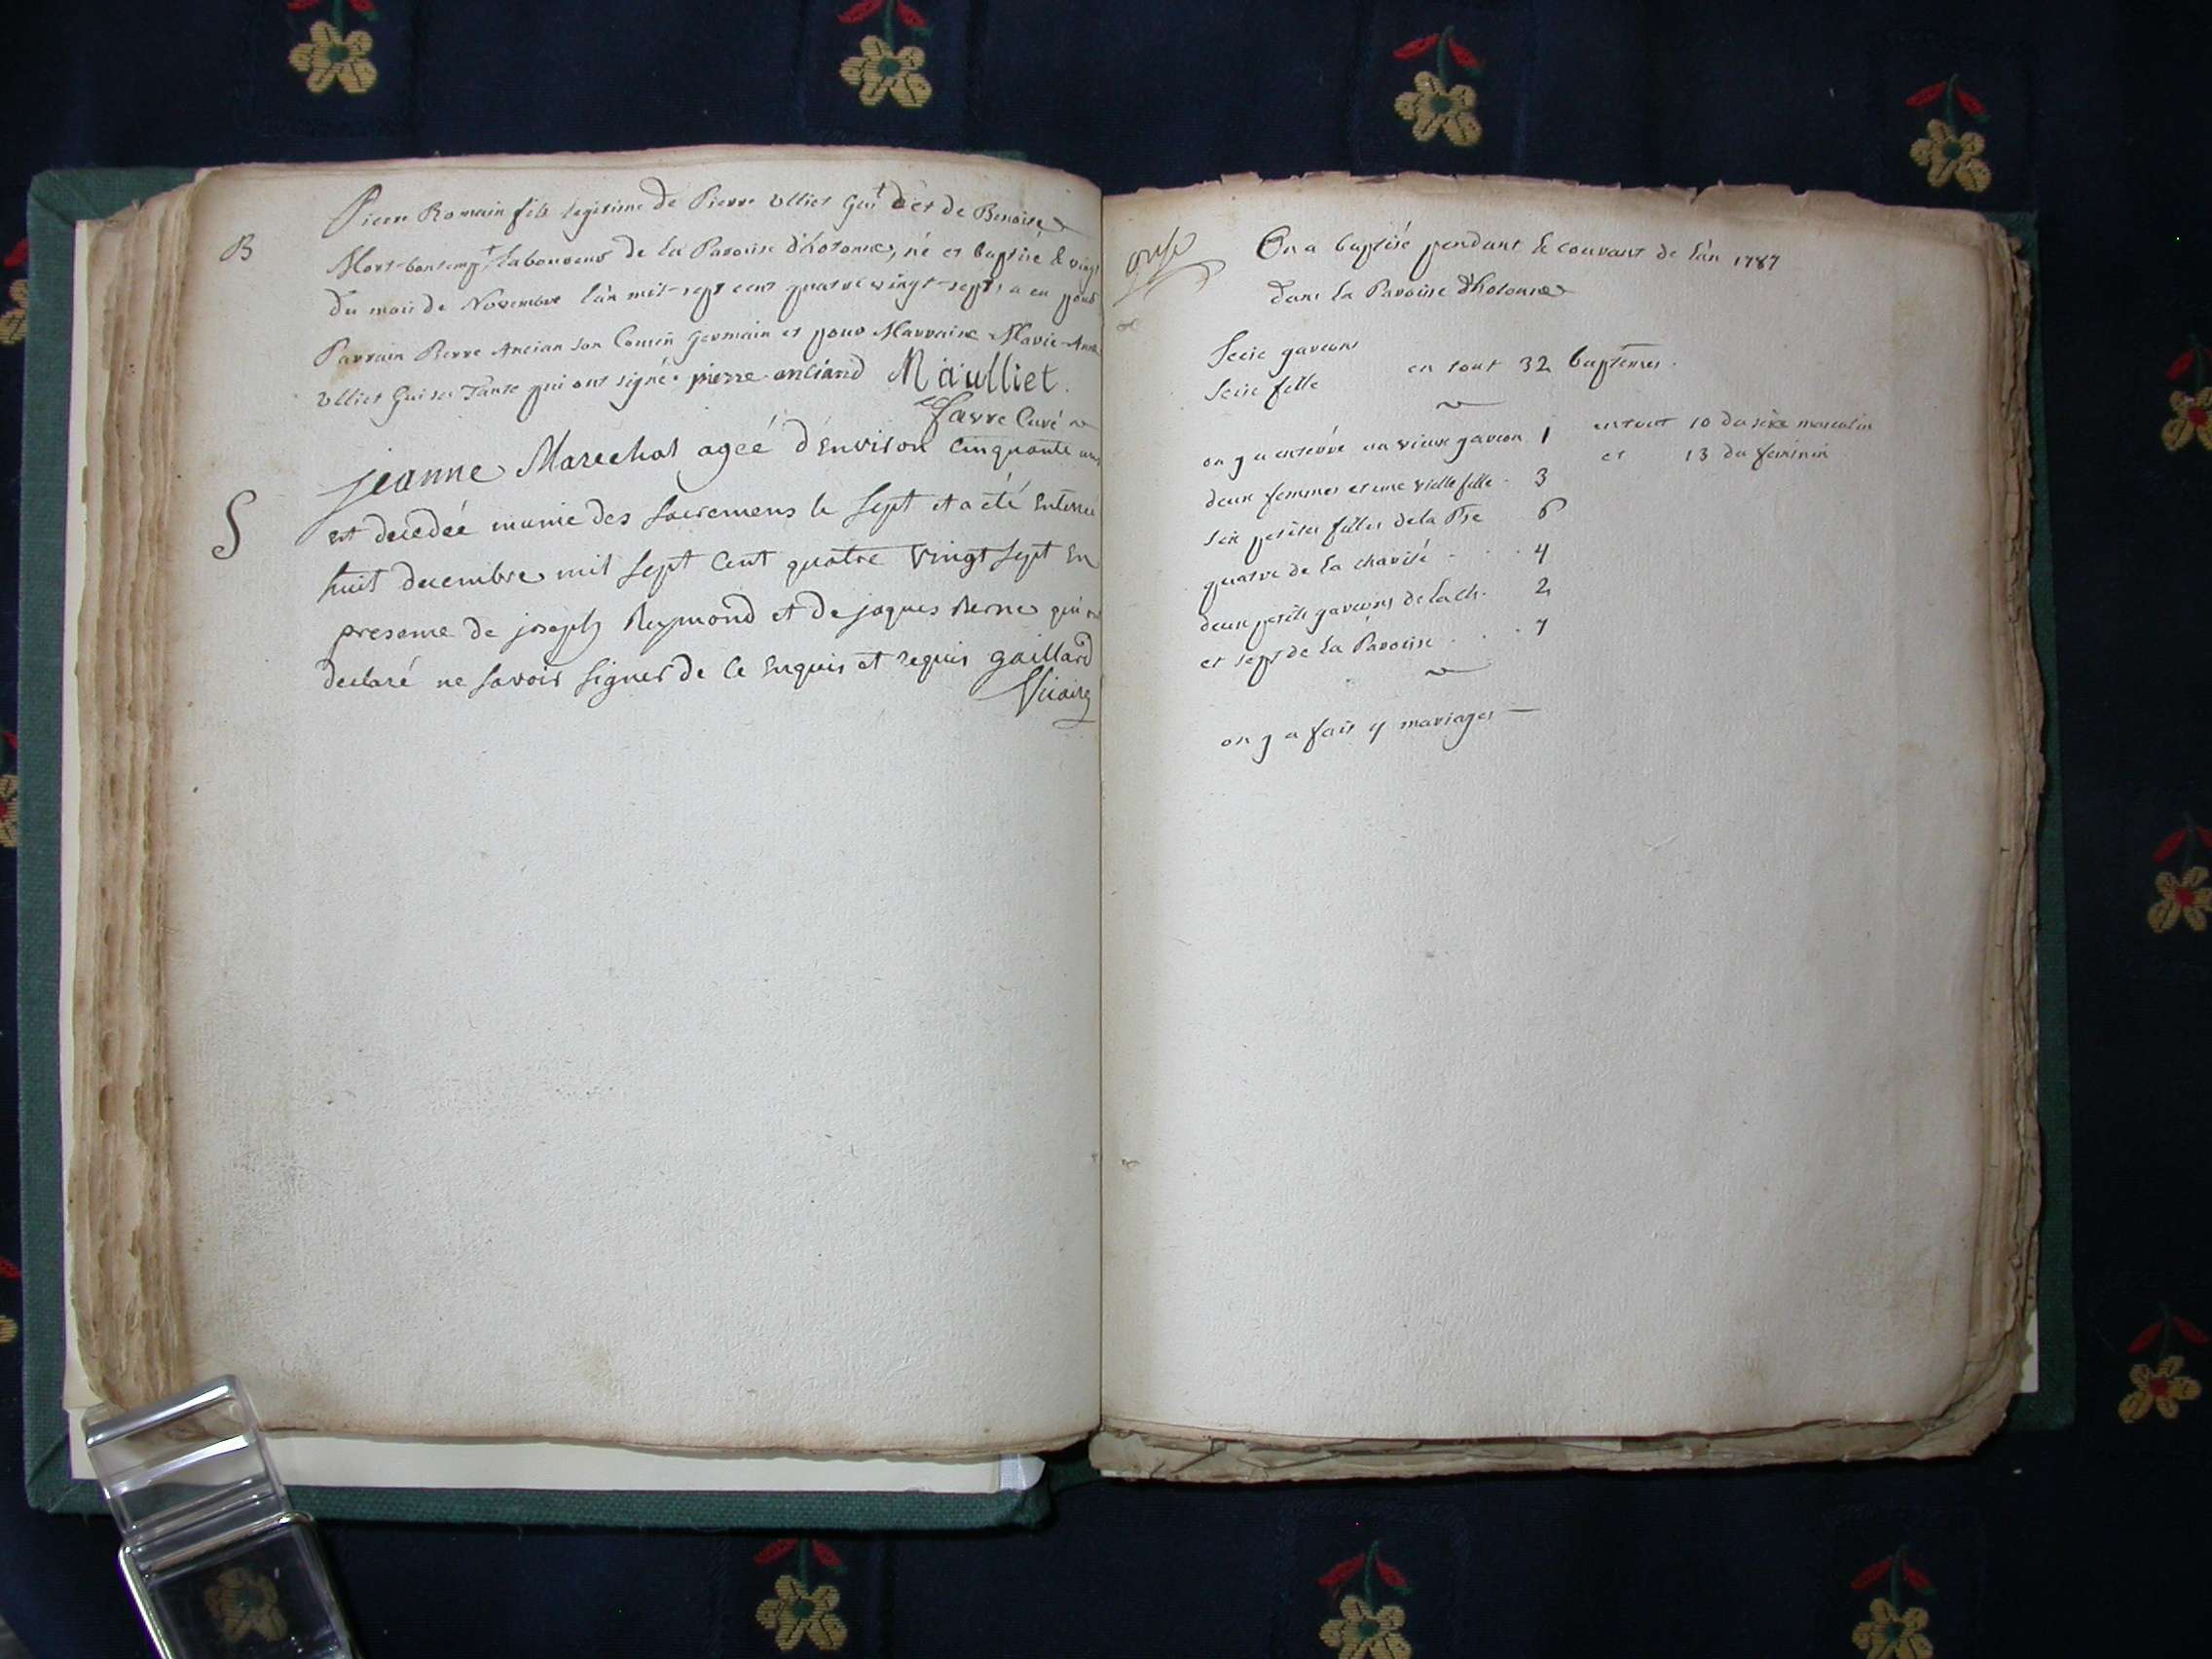 B
Pierre Romain fils legitime de Pierre Ulliet Gui et de Benoite
Mort-bontemps Laboureurs de la Paroisse d'hotonne, né et baptisé le vingt
du mois de Novembre l'an mil-sept cent quatre vingt-sept, a eu pour
Parrain Pierre Ancian son Cousin germain et pour Marraine Marie-Anne
Ulliet Gui sa Tante qui ont signé. pierre anciand M a ulliet.
favre Curé
S
jeanne Marechal agéé d'Environ Cinquante ans
est decedéé munie des sacremens le sept et a été Enterrée
huit decembre mil sept Cent quatre vingt sept En
presence de joseph Reymond et de jaques Berne qui
declaré ne savoir signer de Ce Enquis et requis gaillard
Vicaire
onze
On a baptisé pendant le courant de l'an 1787
dans la Paroisse d'hotonne
Seize garcons
Seize fille en tout 32 baptêmes.
on y a enterré un vieux garcon 1 en tout 10 du sèxe masculin
deux femmes et une vielle fille. 3 et 13 du féminin
six petites filles de la Pse 6
quatre de la charité . . . 4
deux petits garcons de la ch. 2
et sept de la Paroisse . . . 7
on y a fait 4 mariages —